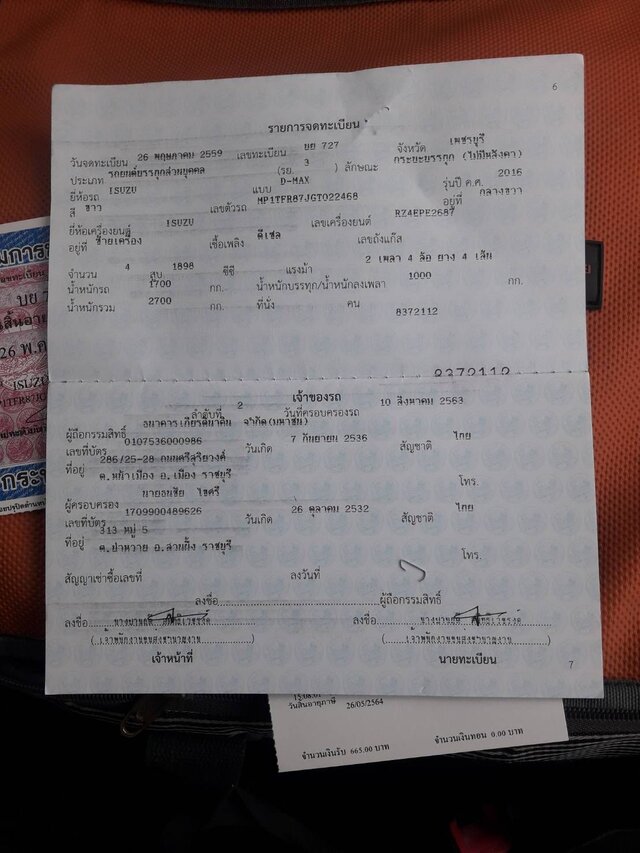 6
รายการจดทะเบียน
วันจดทะเบียน 26 พฤษภาคม 2559 เลขทะเบียน บย 727 จังหวัด เพชรบุรี
ประเภท รถยนต์บรรทุกส่วนบุคคล (รย. 3 ) ลักษณะ กระบะบรรทุก (ไม่มีหลังคา)
ยี่ห้อรถ ISUZU แบบ D-MAX รุ่นปี ค.ศ. 2016
สี ขาว เลขตัวรถ MP1TFR87JGT022468 อยู่ที่ กลางขวา
ยี่ห้อเครื่องยนต์ ISUZU เลขเครื่องยนต์ RZ4EPE2687
อยู่ที่ ซ้ายเครื่อง เชื้อเพลิง ดีเซล เลขถังแก๊ส
จำนวน 4 สูบ 1898 ซีซี แรงม้า 2 เพลา 4 ล้อ ยาง 4 เส้น
น้ำหนักรถ 1700 กก. น้ำหนักบรรทุก/น้ำหนักลงเพลา 1000 กก.
น้ำหนักรวม 2700 กก. ที่นั่ง คน
8372112
8372112
เจ้าของรถ
ลำดับที่ 2 วันที่ครอบครองรถ 10 สิงหาคม 2563
ผู้ถือกรรมสิทธิ์ ธนาคารเกียรตินาคิน จำกัด(มหาชน)
เลขที่บัตร 0107536000986 วันเกิด 7 กันยายน 2536 สัญชาติ ไทย
ที่อยู่ 286/25-28 ถนนศรีสุริยวงศ์
ต.หน้าเมือง อ.เมือง ราชบุรี โทร.
ผู้ครอบครอง นายธนชัย
เลขที่บัตร 1709900489626 วันเกิด 26 ตุลาคม 2532 สัญชาติ ไทย
ที่อยู่ 313 หมู่ 5
ต.ป่าหวาย อ.สวนผึ้ง ราชบุรี โทร.
สัญญาเช่าซื้อเลขที่ ลงวันที่
ลงชื่อ ผู้ถือกรรมสิทธิ์
ลงชื่อ ลงชื่อ
(เจ้าพนักงานขนส่งชำนาญงาน) (เจ้าพนักงานขนส่งชำนาญงาน)
เจ้าหน้าที่ นายทะเบียน
7
บย 7
26 พ.ค
ISUZU
วันสิ้นอายุภาษี 26/05/2564
จำนวนเงินรับ 665.00 บาท จำนวนเงินทอน 0.00 บาท